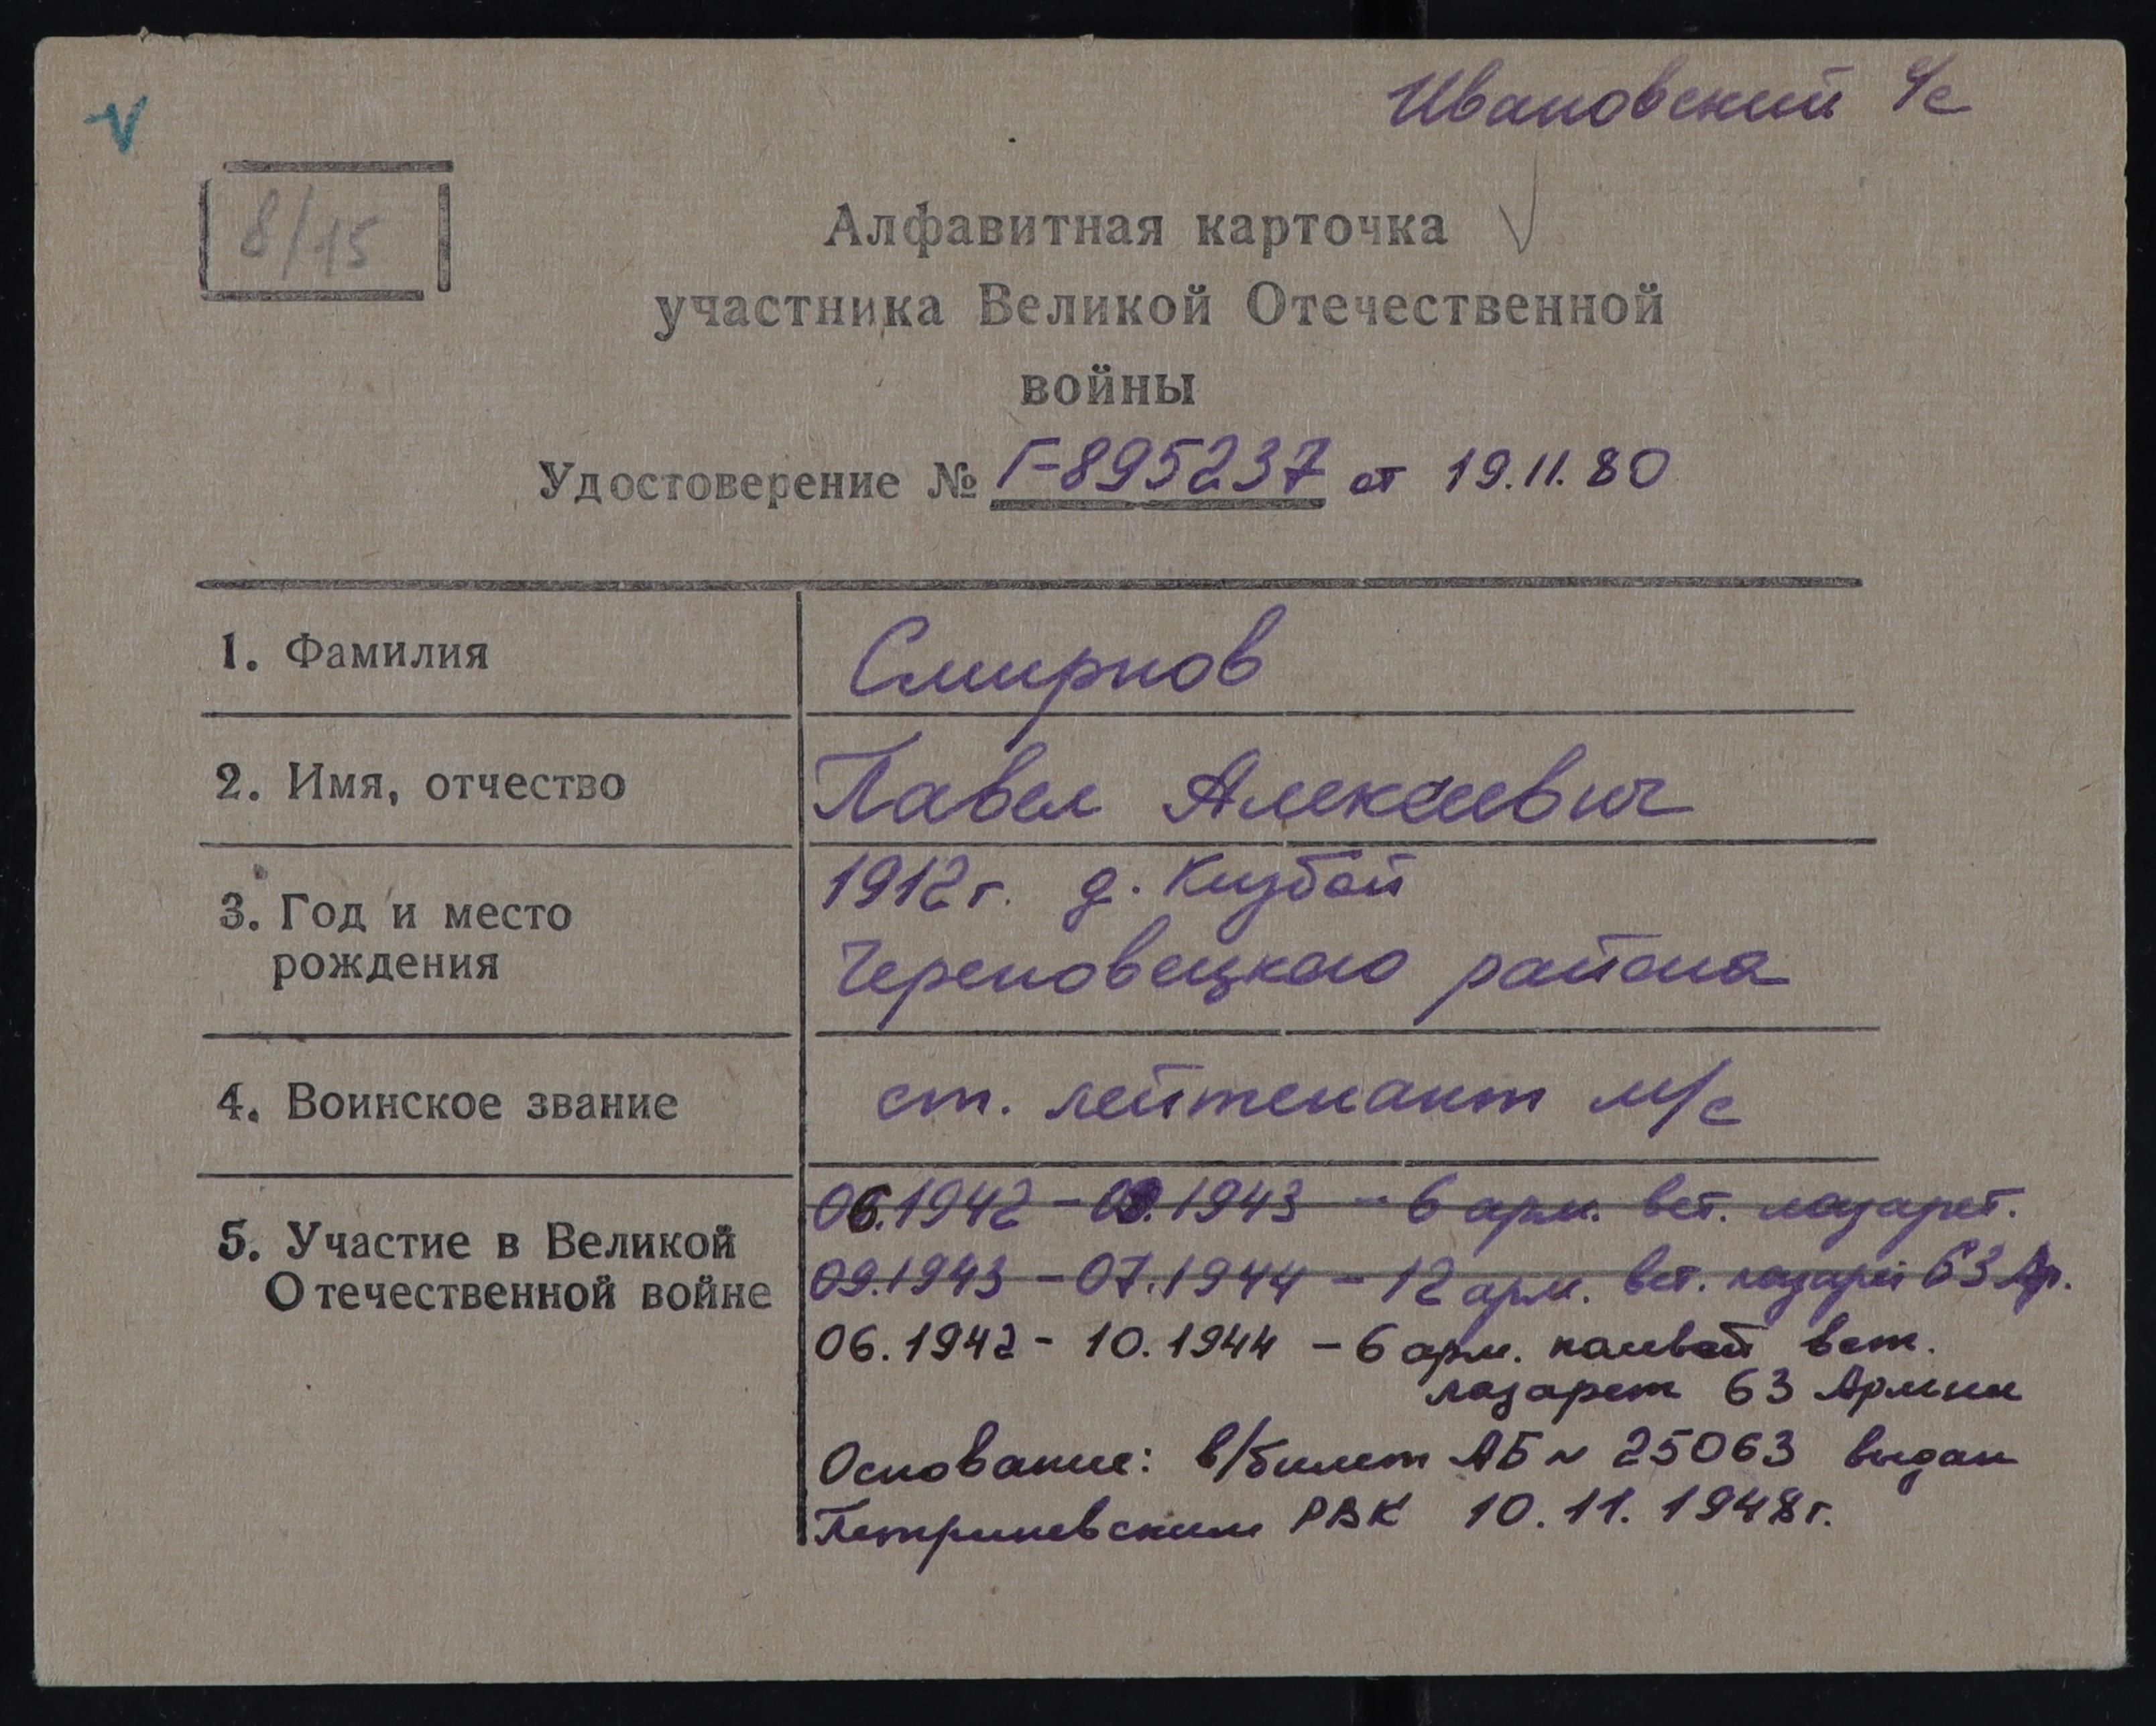 Ивановский с/с
8/15
Алфавитная карточка
участника Великой Отечественной
войны
Удостоверение № Г-895237 от 19.11.80
1. Фамилия
Смирнов
2. Имя, отчество
Павел Алексеевич
3. Год и место
рождения
1912 г. д. Кизбой
Череповецкого района
4. Воинское звание
ст. лейтенант м/с
5. Участие в Великой
Отечественной войне
06.1942 - 09.1943 - 6 арм. вет. лазарет.
09.1943 - 07.1944 - 12 арм. вет. лазарет 63 Ар.
06.1942 - 10.1944 - 6 арм. полевой вет.
лазарет 63 Армии
Основание: в/билет АБ № 25063 выдан
Петриневским РВК 10.11.1948 г.